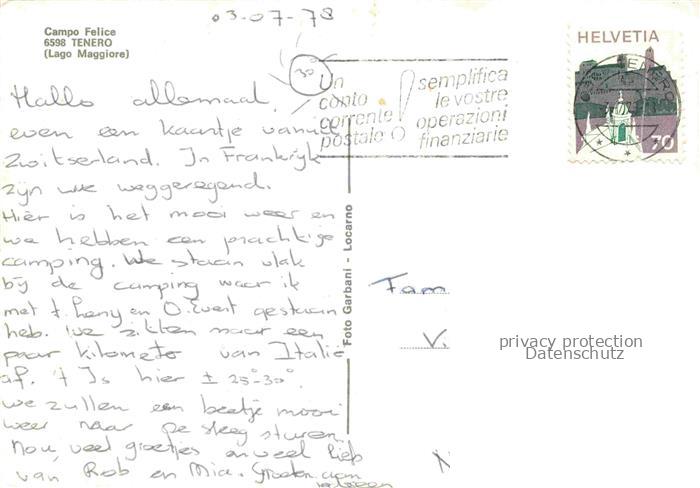 03-07-78
Campo Felice
6598 TENERO
(Lago Maggiore)
HELVETIA
70
30°
Un conto corrente postale
semplifica le vostre operazioni finanziarie
Hallo allemaal,
even een kaartje vanuit
Zwitserland. In Frankrijk
zijn we weggeregend.
Hier is het mooi weer en
we hebben een prachtige
camping. We staan vlak
bij de camping waar ik
met t. Leny en O. Evert gestaan
heb. We zitten maar een
paar kilometer van Italie
af. 't Is hier ± 25°-30°.
we zullen een beetje mooi
weer naar sturen.
Nou, veel groetjes en veel liefs
van Rob en Mia. Groeten aan
iedereen
Foto Garbani - Locarno
Fam
V.
privacy protection
Datenschutz